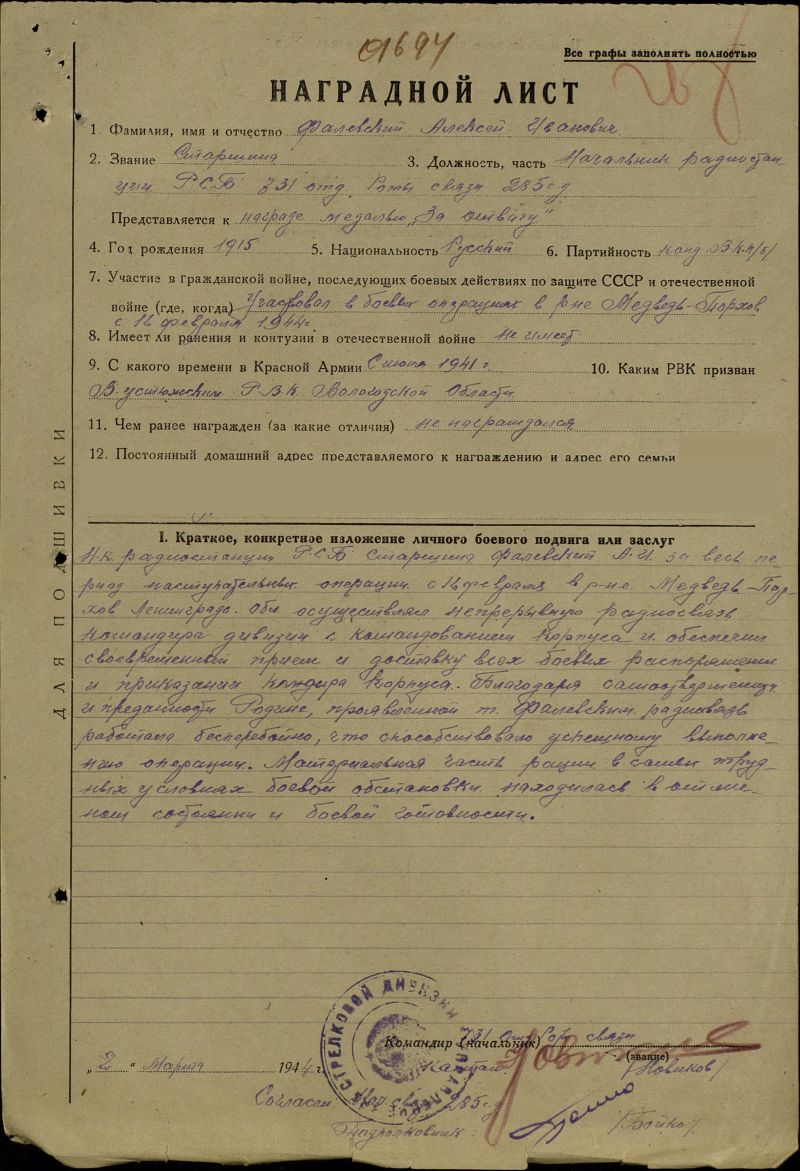 01697
Все графы заполнять полностью
НАГРАДНОЙ ЛИСТ
1. Фамилия, имя и отчество Фалевский Алексей Иванович
2. Звание Старшина 3. Должность, часть Начальник радиостан
ции РСБ 731 отд. Роты связи 285сд
Представляется к награде медалью „За отвагу"
4. Год рождения 1915 5. Национальность Русский 6. Партийность канд. ВКП/б/
7. Участие в гражданской войне, последующих боевых действиях по защите СССР и отечественной
войне (где, когда) Участвовал в боевых операциях в р-не Медведь-Порхов
с 16 февраля 1944г
8. Имеет ли ранения и контузии в отечественной войне не имеет
9. С какого времени в Красной Армии С июля 1941 г 10. Каким РВК призван
В. устюжским Р.В.К. Вологодской Области
11. Чем ранее награжден (за какие отличия) не награждался
12. Постоянный домашний адрес представляемого к награждению и адрес его семьи
I. Краткое, конкретное изложение личного боевого подвига или заслуг
Н-к радиостанции РСБ Старшина Фалевский А.И. за весь пе-
риод наступательных операции с 16 февраля в р-не Медведь-Пор-
хов Ленинградс. Обл осуществлял непрерывную радиосвязь
командира дивизии с командованием корпуса и обеспечил
своевременный прием и доставку всех боевых распоряжении
и приказании к-ра Корпуса. Благодаря
и преданности Родине, проявленной т. Фалевским радиосвязь
работала бесперебойно, что способствовало успешному выполне-
нию операции. Материальная часть рации в самых труд-
ных условиях боевой обстановки находилась в отлич-
ном состоянии и боевой готовности.
ДЛЯ ПОДШИВКИ
731 отд Роты связи
Командир (начальник)
(звание)
„2" Марта 1944 г. Капитан /Новиков/
СТРЕЛКОВОЙ ДИВИЗИИ
Согласен: Нач св. 285сд
Подполковник /Бойко/